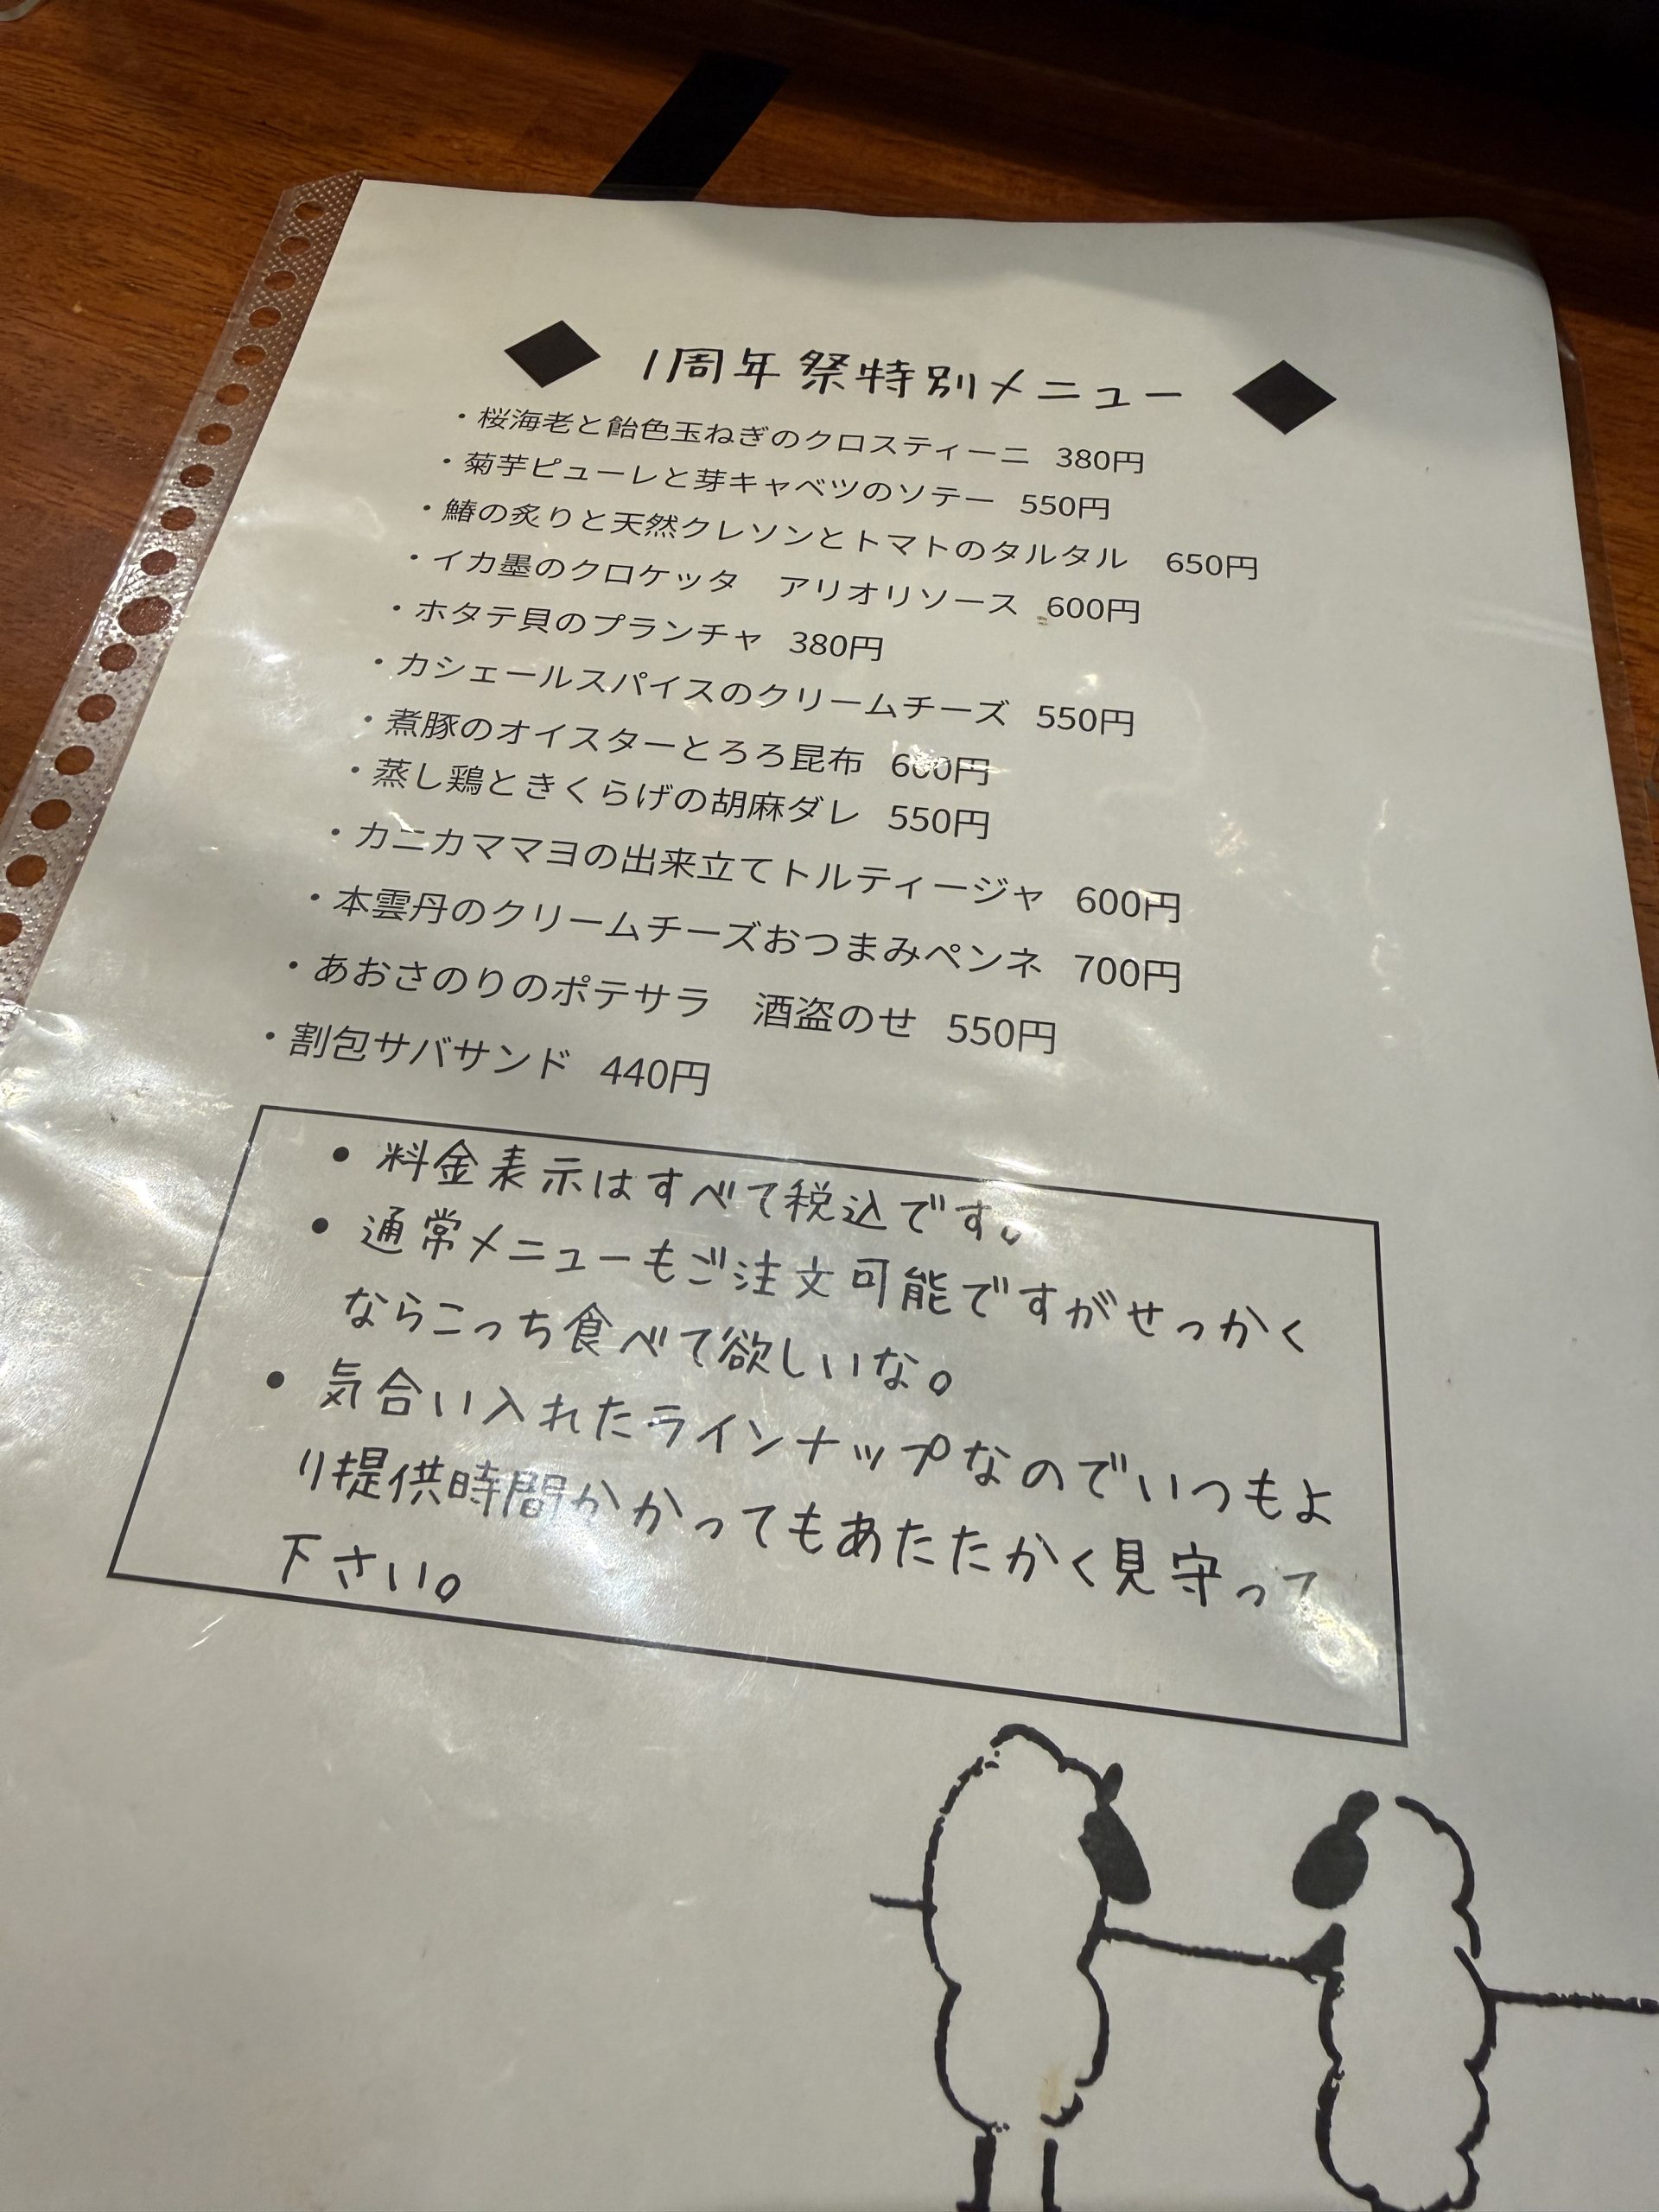 ◆ 1周年祭特別メニュー ◆
・桜海老と飴色玉ねぎのクロスティーニ 380円
・菊芋ピューレと芽キャベツのソテー 550円
・鰆の炙りと天然クレソンとトマトのタルタル 650円
・イカ墨のクロケッタ アリオリソース 600円
・ホタテ貝のプランチャ 380円
・カシェールスパイスのクリームチーズ 550円
・煮豚のオイスターとろろ昆布 600円
・蒸し鶏ときくらげの胡麻ダレ 550円
・カニカママヨの出来立てトルティージャ 600円
・本雲丹のクリームチーズおつまみペンネ 700円
・あおさのりのポテサラ 酒盗のせ 550円
・割包サバサンド 440円
• 料金表示はすべて税込です。
• 通常メニューもご注文可能ですがせっかく
ならこっち食べて欲しいな。
• 気合い入れたラインナップなのでいつもよ
り提供時間かかってもあたたかく見守って
下さい。